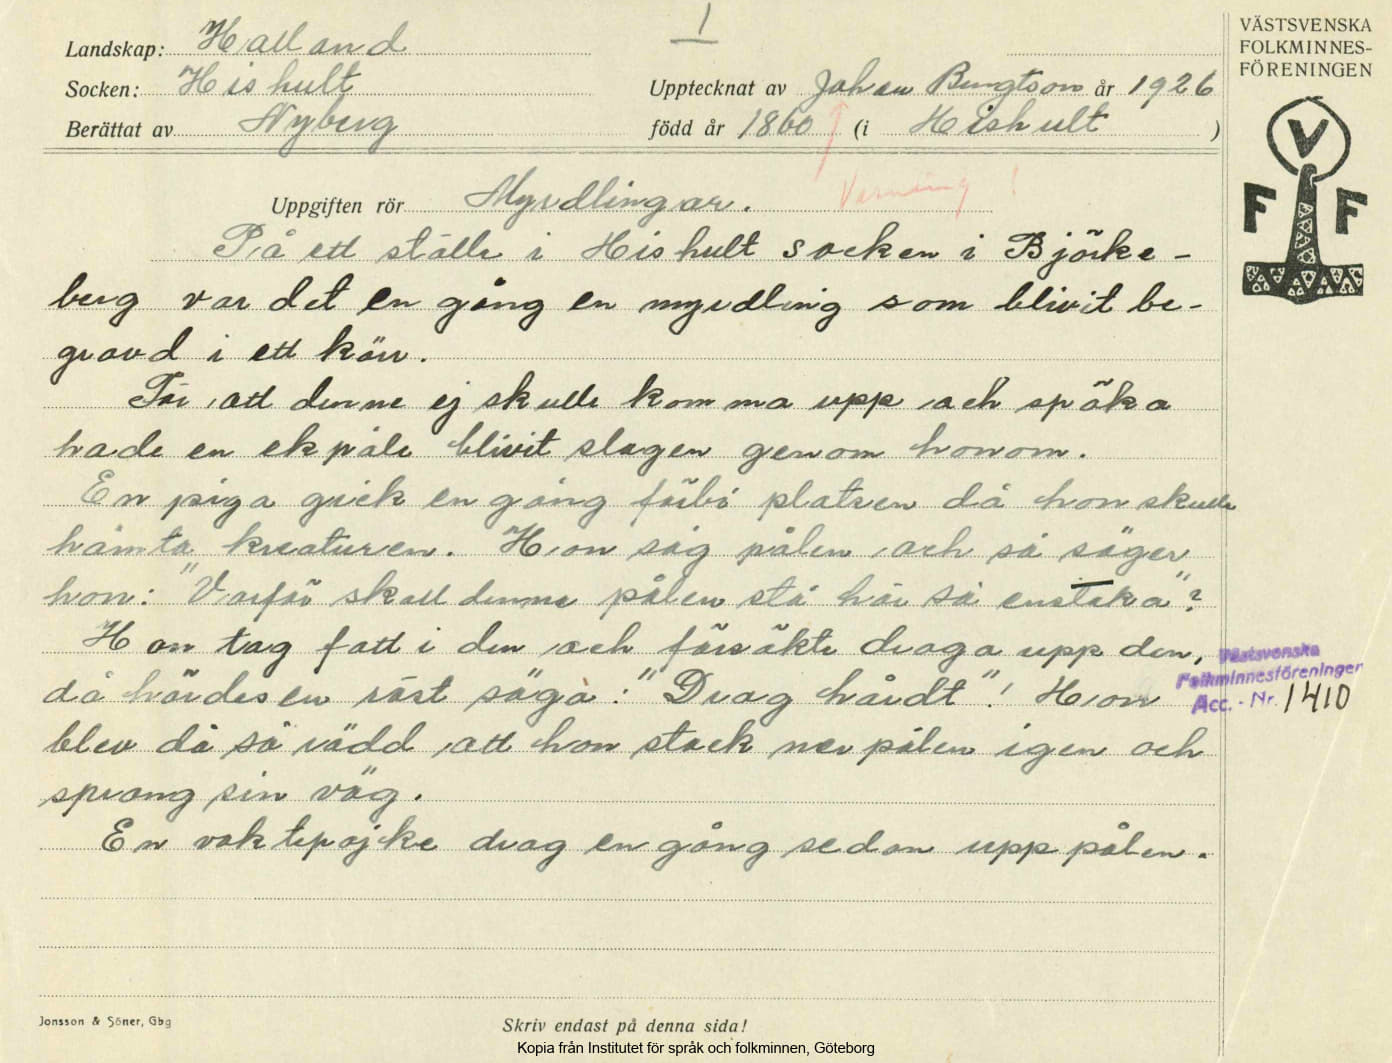 1
Landskap: Halland
Socken: Hishult
Upptecknat av Johan Bengtson år 1926
Berättat av Nyberg
född år 1860 (i Hishult)
Varning!
Uppgiften rör Myrdlingar.
På ett ställe i Hishult socken i Björke-
berg var det en gång en myrdling som blivit be-
gravd i ett kärr.
För att denne ej skulle komma upp och spöka
hade en ekpåle blivit slagen genom honom.
En piga gick en gång förbi platsen då hon skulle
hämta kreaturen. Hon såg pålen och så säger
hon: "Varför skall denne pålen stå här så enstaka"?
Hon tag fatt i den och försökte draga upp den,
då hördes en röst säga: "Drag hårdt"! Hon
blev då så rädd att hon stack ner pålen igen och
sprang sin väg.
En vaktepojke drog en gång sedan upp pålen.
VÄSTSVENSKA
FOLKMINNES-
FÖRENINGEN
V
F F
Västsvenska
Folkminnesföreningen
Acc. - Nr. 1410
Jonsson & Söner, Gbg
Skriv endast på denna sida!
Kopia från Institutet för språk och folkminnen, Göteborg